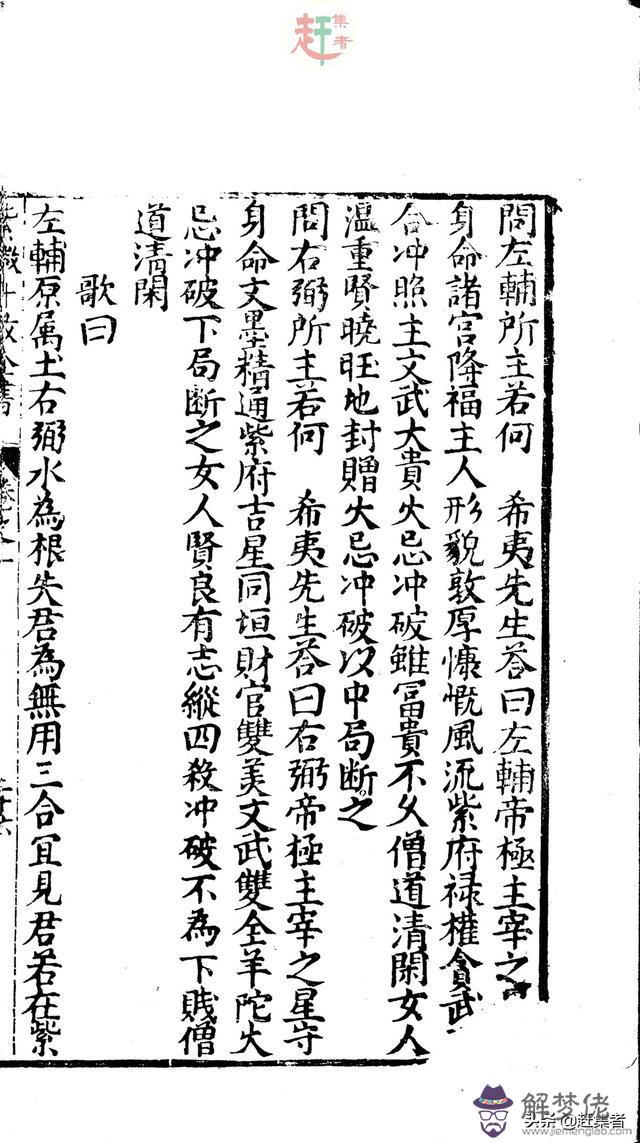 赶集者
問左輔所主若何　希夷先生荅曰左輔帝極主宰之
身命諸宮降福主人形貌敦厚慷慨風流紫府祿權貪武
合冲照主文武大貴火忌冲破雖富貴不久僧道清閑女人
溫重賢曉旺地封贈火忌冲破以中局断之
問右弼所主若何　希夷先生荅曰右弼帝極主宰之星守
身命文墨精通紫府吉星同垣財官雙美文武雙全羊陀火
忌冲破下局断之女人賢良有志縱四殺冲破不為下賎僧
道清閑
歌曰
左輔原属土右弼水為根失君為無用三合冝見君若在紫
紫微斗数全書
解梦佬
www.jiemenglab.com
头条@赶集者